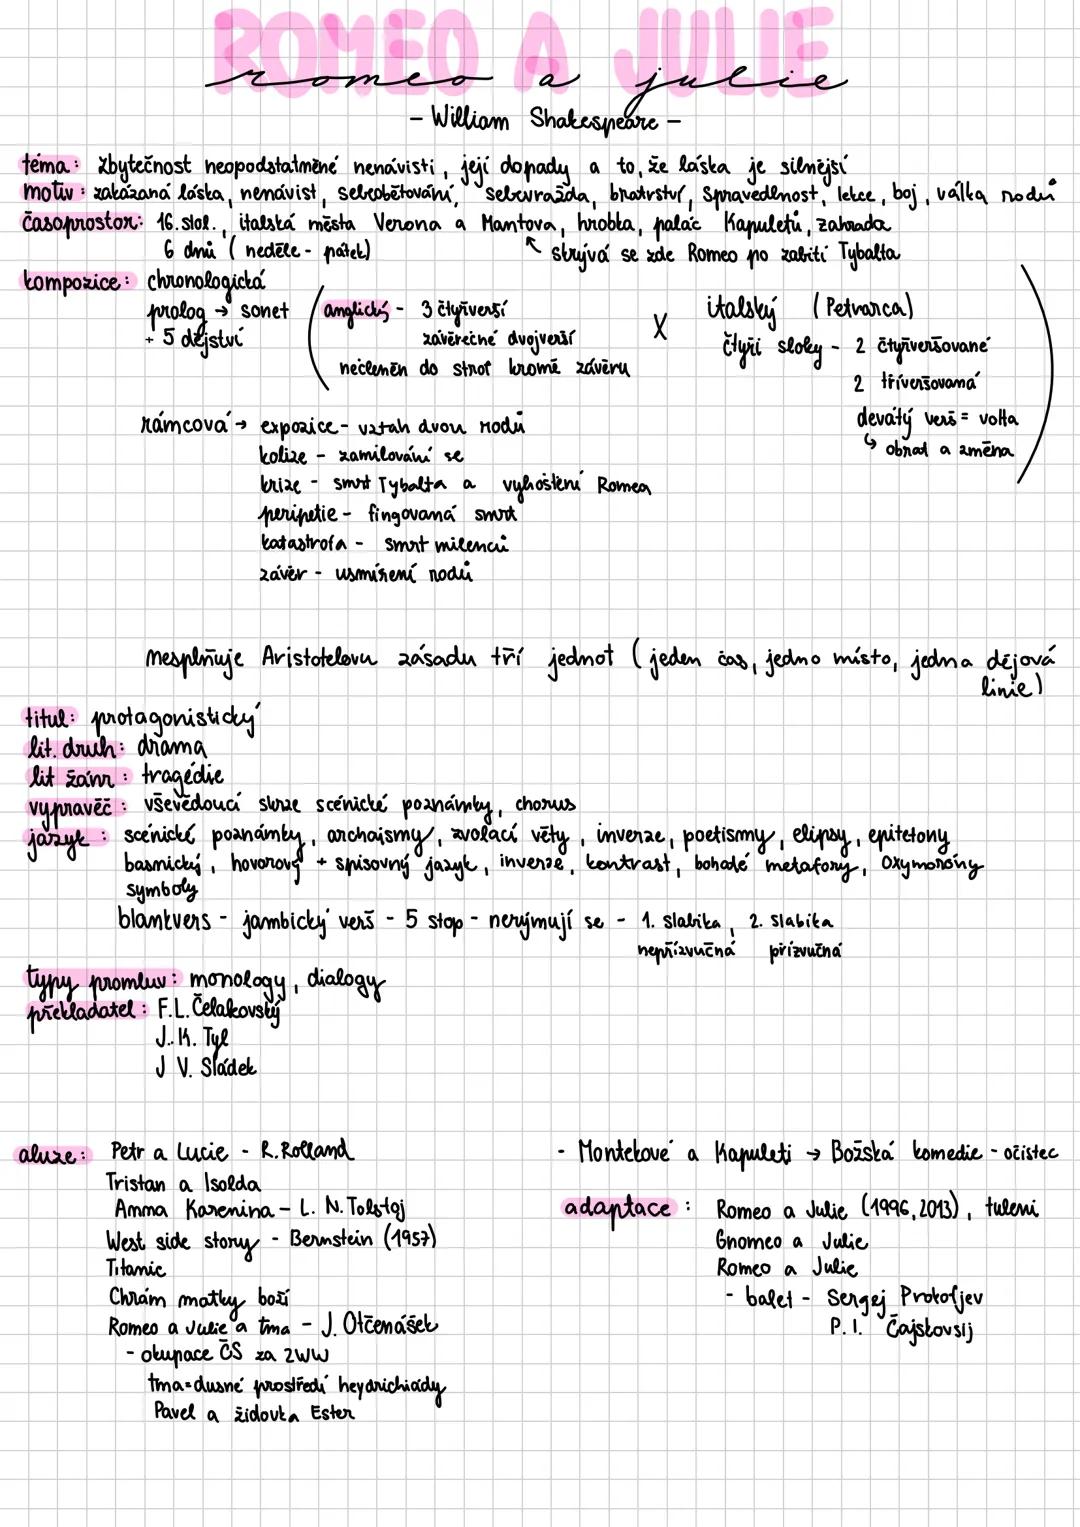 ROMEO A JULIE
romeo a julie
- William Shakespeare -
téma: zbytečnost neopodstatněné nenávisti, její dopady a to, že láska je silnější
motiv: zakázaná láska, nenávist, sebeobětování, sebevražda, bratrství, spravedlnost, lekce, boj, válka rodů
časoprostor: 16. stol., italská města Verona a Mantova, hrobka, palác Kapuletů, zahrada
6 dnů (neděle - pátek) ↖ skrývá se zde Romeo po zabití Tybalta
kompozice: chronologická
prolog → sonet (anglický - 3 čtyřverší X italský (Petrarca)
+ 5 dějství závěrečné dvojverší čtyři sloky - 2 čtyřveršované
nečleněn do strof kromě závěru 2 tříveršovaná
devátý verš = volta
↳ obrat a změna)
rámcová → expozice - vztah dvou rodů
kolize - zamilování se
krize - smrt Tybalta a vyhoštění Romea
peripetie - fingovaná smrt
katastrofa - smrt milenců
závěr - usmíření rodů
nesplňuje Aristotelovu zásadu tří jednot (jeden čas, jedno místo, jedna dějová
linie)
titul: protagonistický
lit. druh: drama
lit žánr: tragédie
vypravěč: vševědoucí skrze scénické poznámky, chorus
jazyk: scénické poznámky, archaismy, zvolací věty, inverze, poetismy, elipsy, epitetony
básnický, hovorový + spisovný jazyk, inverze, kontrast, bohaté metafory, oxymoróny
symboly
blankvers - jambický verš - 5 stop - nerýmují se - 1. slabika, 2. slabika
nepřízvučná přízvučná
typy promluv: monology, dialogy
překladatel: F.L. Čelakovský
J. K. Tyl
J V. Sládek
aluze: Petr a Lucie - R. Rolland
Tristan a Isolda
Anna Karenina - L. N. Tolstoj
West side story - Bernstein (1957)
Titanic
Chrám matky boží
Romeo a Julie a tma - J. Otčenášek
- okupace ČS za 2WW
tma = dusné prostředí heydrichiády
Pavel a židovka Ester
- Montekové a Kapuleti → Božská komedie - očistec
adaptace: Romeo a Julie (1996, 2013), tuleni
Gnomeo a Julie
Romeo a Julie
- balet - Sergej Prokofjev
P. I. Čajskovsij